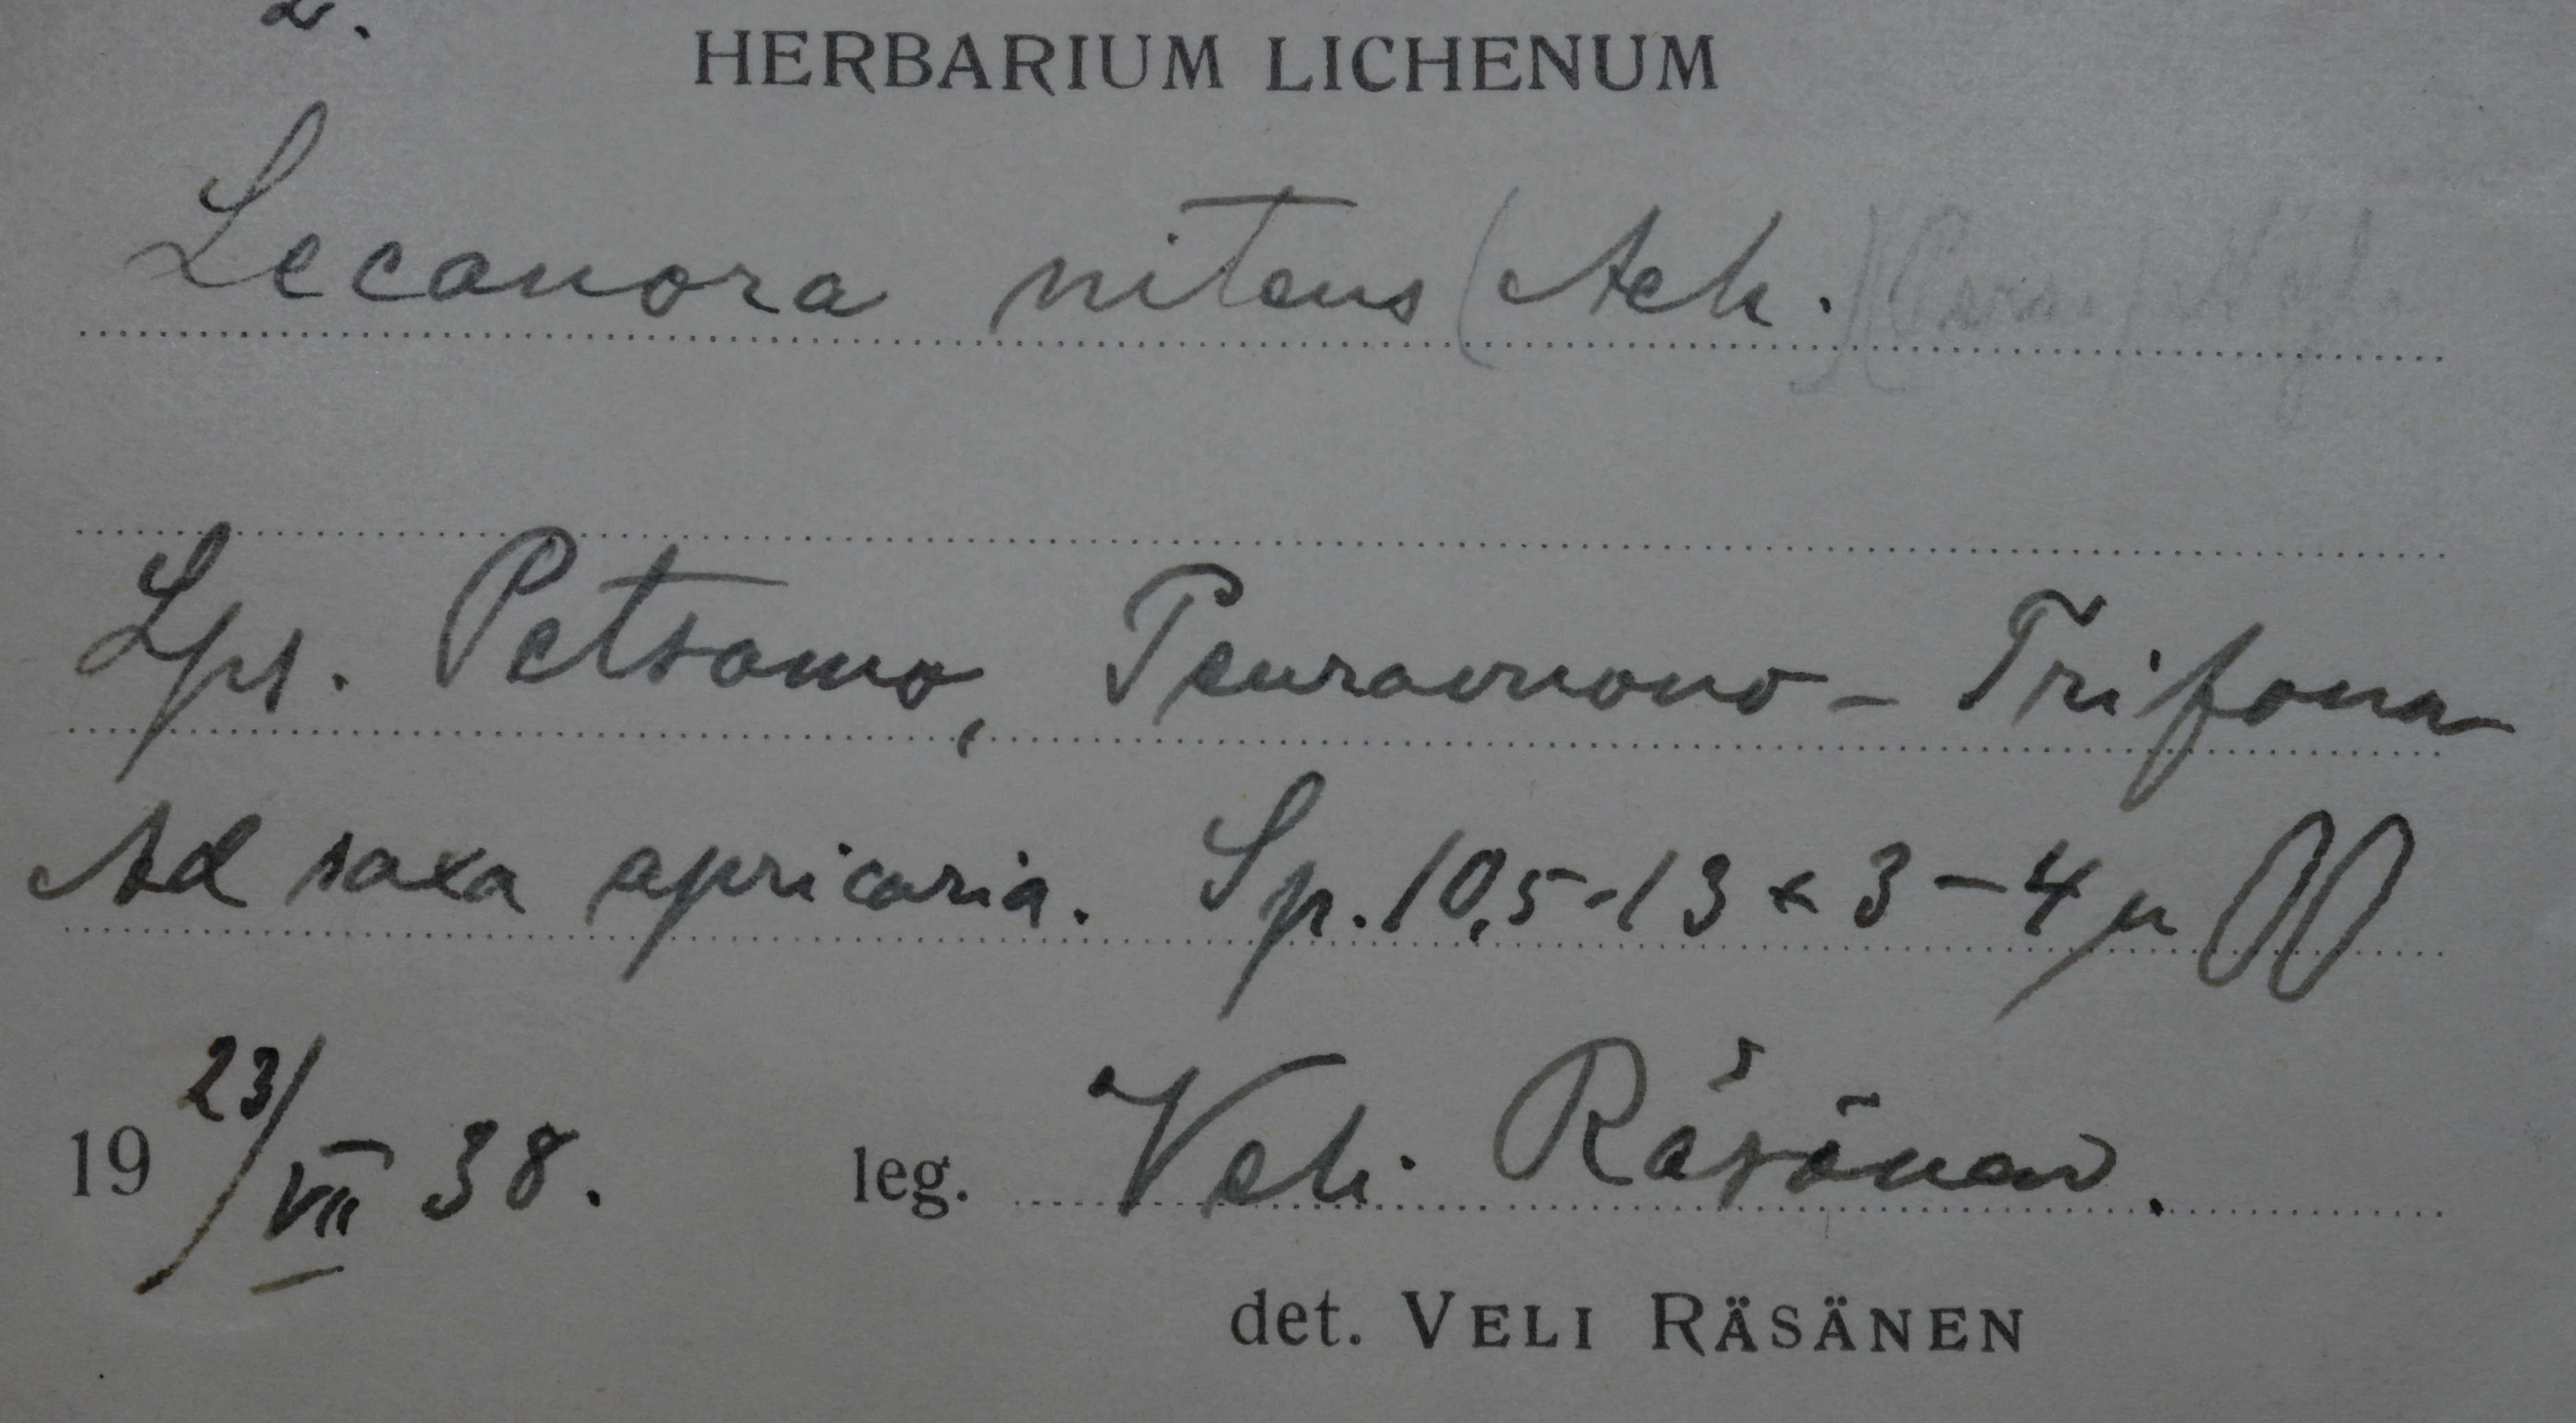 2.
HERBARIUM LICHENUM
Lecanora nitens (Ach.)
Lps. Petsamo, Peuravuono - Trifona
Ad saxa apricaria. Sp. 10,5-13 × 3-4 µ
19 23/VII 38. leg. Veli Räsänen.
det. VELI RÄSÄNEN